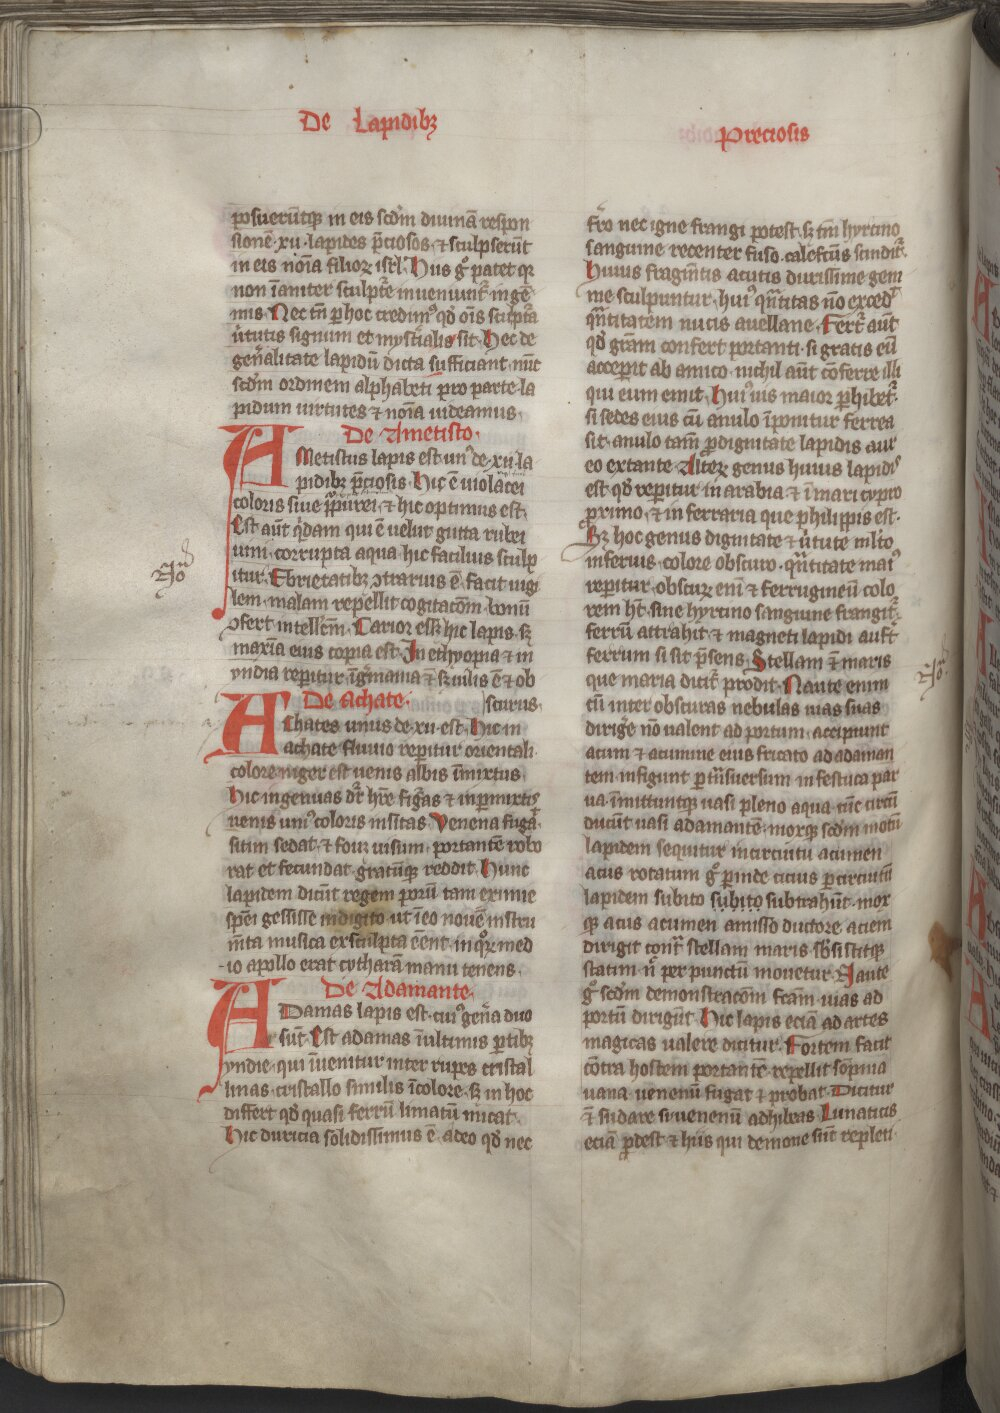 De Lapidibꝫ
Preciosis
posuerūtqꝫ in eis scd̄m diuinā respon
sionē ·xii· lapides p̄ciosos ⁊ sculpserūt
in eis noīa filioꝝ isrl̄ Hiis gͦ patet qꝛ
non īaniter sculpte inueniunt᷑ in gē
mis Nec tn̄ p hoc credimꝰ qd̓ oīs sculpta
v̓tutis signum et mysterialis sit Hec de
gen̄alitate lapidū dicta sufficiant nūc
scd̄m ordinem alphabeti pro parte la
pidum uirtutes ⁊ noīa uideamus
De Ametisto
AMetistus lapis est unꝰ de xii la
pidibꝫ p̄ciosis Hic ē violacei
coloris siue p̱purei ⁊ hic optimus est
Est aūt q̓dam qui ē uelut gutta rubei
uini corrupta aqua hic facilius sculp
itur Ebrietatibꝫ ꝯtrarius ē facit uigi
lem malam repellit cogitacōm bonū
ꝯfert intellcm̄ Carior eēt hic lapis sꝫ
maxīa eius copia est In ethyopia ⁊ in
yndia reperitur īgm̄ania ⁊ sꝫ uilis ē ⁊ ob
scurus
De Achate
AChates unus de xii est Hic in
achate fluuio reperitur orientali
colore niger est uenis albis īmixtus
Hic ingenuas dr̄ hr̄e figͣs ⁊ inpermixtis
uenis uniꝰ coloris insitas Venena fugā
sitim sedat ⁊ fouꝫ uisum portantē robo
rat et fecundat gratūqꝫ reddit Hunc
lapidem dicūt regem poruū tam eximie
spēi gessisse in digito ut īeo nouē instru
mīta musica exsculpta eēnt in qͦꝝ med
io apollo erat cytharā manu tenens
De Adamante
ADamas lapis est cuiꝰ gen̄a duo
sūt Est adamas ī ultimis p̱tibꝫ
yndie qui īuenitur inter rupes cristal
linas cristallo similis ī colore sꝫ in hoc
differt qd̓ quasi ferrū limatū micat
Hic duricia solidissimus ē adeo qd̓ nec
fr̄o nec igne frangi potest sꝫ tm̄ hyrcino
sanguine recenter fuso calefctūs scindit᷑
Huius fragm̄tis acutis durissime gem
me sculpuntur huiꝰ qn̄titas nō exced᷑
qn̄titatem nucis auellane Fert᷑ aūt
qd̓ grām confert portanti si gratis eū
acceperit ab amico nichil aūt cōferre illi
qui eum emit Huiꝰ uis maior perhibet᷑
si sedes eius cū anulo īponitur ferrea
sit anulo tam̄ p̱ dignitate lapidis aur
eo extante Alteꝝ genus huius lapidis
est qd̓ reperitur in arabia ⁊ ī mari cyprio
primo ⁊ in ferraria que philippis est
Sꝫ hoc genus dignitate ⁊ v̓tute ml̓to
inferius colore obscuro qn̄titate maiꝰ
reperitur obscurꝫ enī ⁊ ferrugineū colo
rem ht̄ sine hyrcino sanguine frangit᷑
ferrū attrahit ⁊ magneti lapidi aufert
ferrum si sit p̄sens Stellam ē maris
que maria dicit᷑ prodit Naute enim
cū inter obscuras nebulas uias suas
dirige nō ualent ad portum accipiunt
acum ⁊ acumine eius fricato ad adaman
tem infigunt p trāsuersum in festuca par
ua īmittuntqꝫ uasi pleno aqua tūc circū
ducūt uasi adamantē moxqꝫ scd̄m motū
lapidem sequitur in circuitu acumen
acus rotatum gͦ perinde cicius p circuitū
lapidem subito subito subtrahūt mox
qꝫ acus acumen amisso ductore aciem
dirigit cont͛ stellam maris sb̄sistitqꝫ
statim n̄ per punctū mouetur Naute
gͦ scd̄m demonstracōm fcām uias ad
portū dirigūt Hic lapis eciā ad artes
magicas ualere dicitur Fortem facit
cōtra hostem portantē repellit sōpnia
uana uenenū fugat ⁊ probat Dicitur
ē sudare si uenenū adhibeas Lunaticis
eciā prodest ⁊ hiis qui demone sūt repleti